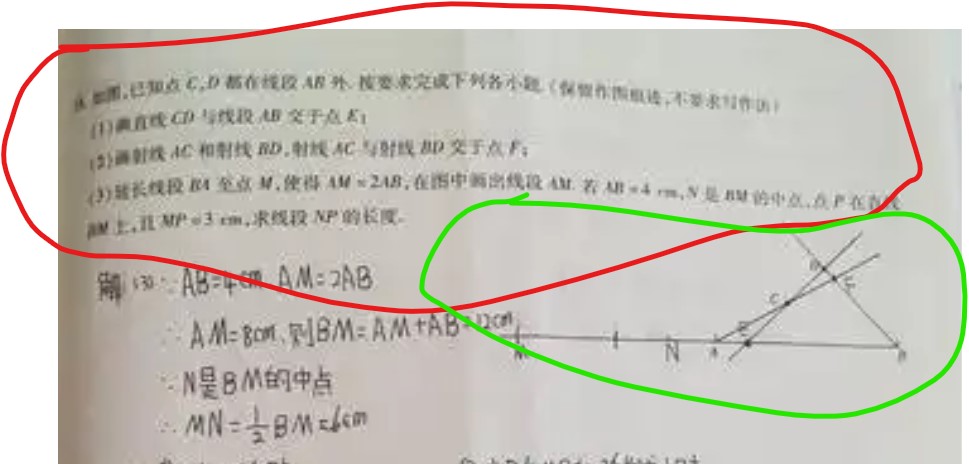 如图,已知点 C,D 都在线段 AB 外.按要求完成下列各小题.(保留作图痕迹,不要求写作法)
(1)画直线 CD 与线段 AB 交于点 E;
(2)画射线 AC 和射线 BD,射线 AC 与射线 BD 交于点 F;
(3)延长线段 BA 至点 M,使得 AM=2AB,在图中画出线段 AM.若 AB=4 cm,N 是 BM 的中点,点 P 在直线
BM 上,且 MP=3 cm,求线段 NP 的长度.
解 (3) ∵ AB=4cm AM=2AB
∴ AM=8cm,则BM=AM+AB=12cm
∵ N是BM的中点
∴ MN=½BM=6cm
D
C
E
M
N
A
B